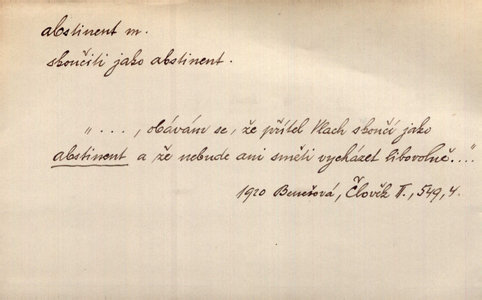 abstinent m.
skončiti jako abstinent.
„ . . . , obávám se, že přítel Vlach skončí jako
abstinent a že nebude ani směti vycházet libovolně...."
1920 Benešová, Člověk II., 549, 4.